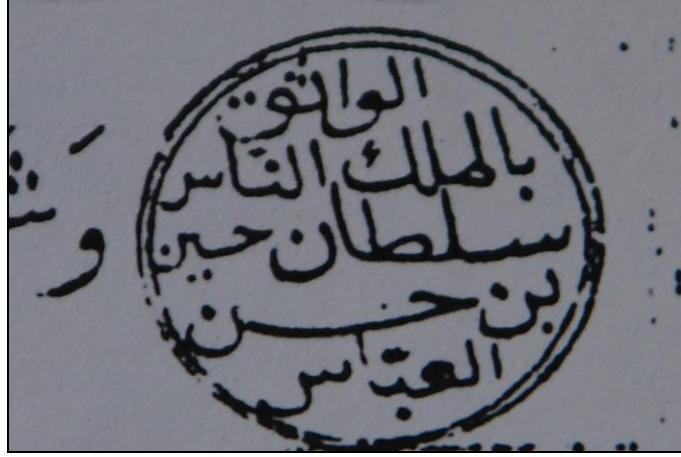 الواثق
بالملك الناس
سلطان حسين
بن حسن
العباس